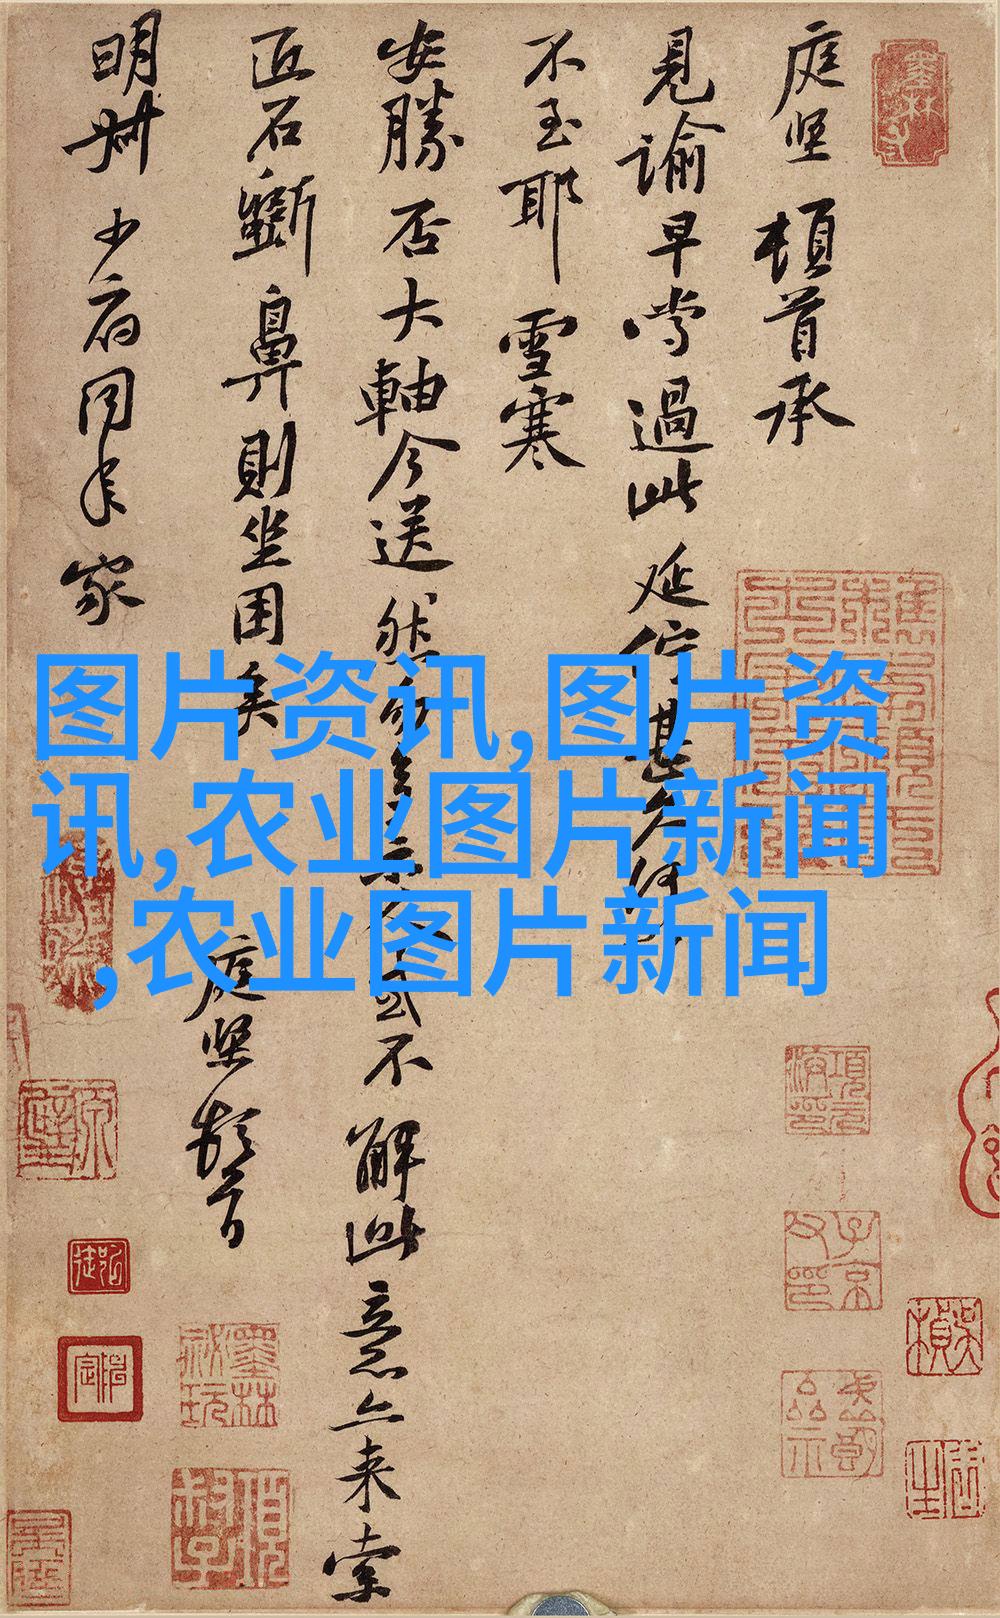 庭坚顿首承
见谕早尝过此延伫甚久何以
不至耶雪寒
安胜否大轴今送然勿多示人或不解此意亦来索
匠石斲鼻则坐困矣庭坚顿首
明叔少府同年家
图片资讯,图片资
讯,农业图片新闻
,农业图片新闻